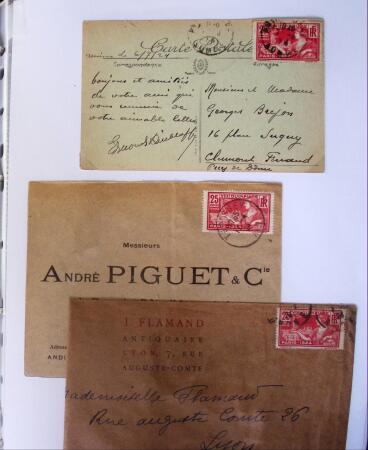 Carte Postale
Correspondance
Adresse
Nîmes le 6/7/24
bonjour et amitiés
de votre ami qui
vous remercie de
votre aimable lettre
Monsieur et Madame
Georges
16 place
Clermont Ferrand
Puy de Dôme
25
PARIS-1924
Messieurs
ANDRÉ PIGUET & Cie
25
PARIS-1924
J. FLAMAND
ANTIQUAIRE
LYON, 7, RUE
AUGUSTE-COMTE
Mademoiselle Flamand
Rue auguste Comte 26
Lyon